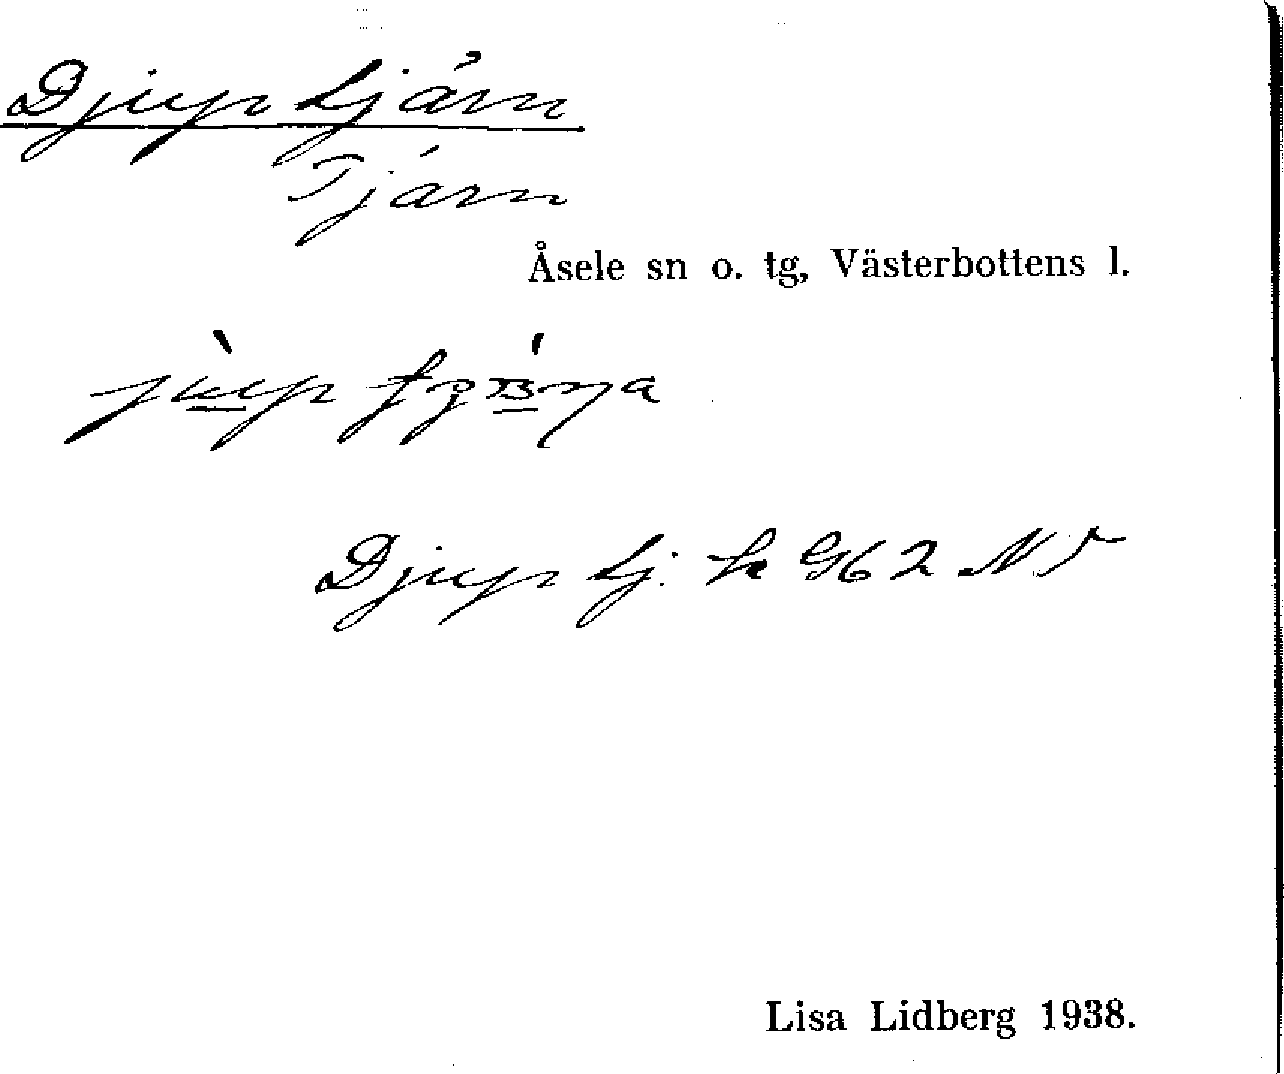 Djuptjärn
Tjärn
Åsele sn o. tg, Västerbottens l.
Djuptj. k G62 NV
Lisa Lidberg 1938.